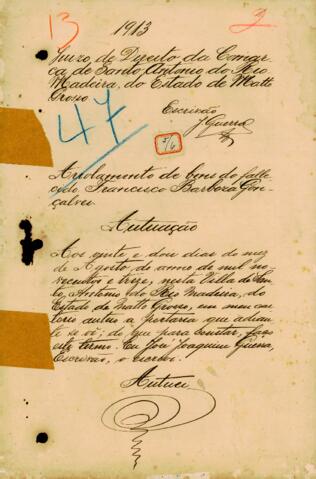 13
1913
2
Juizo de Direito da Comar-
ca de Santo Antonio do Rio
Madeira, do Estado de Matto
Grosso
Escrivão
J Guerra
47
5/6
Arrolamento de bens do falle-
cido Francisco Barboza Gon-
çalves
Autuação
Aos vinte e dous dias do mez
de Agosto do anno de mil no-
vecentos e treze, nesta Villa de San-
to Antonio do Rio Madeira, do
Estado de Matto Grosso, em meu car-
torio autuo a portaria que adian-
te se vê; do que para constar, faço
este termo. Eu José Joaquim Guerra,
Escrivão, o escrevi.
Autuei